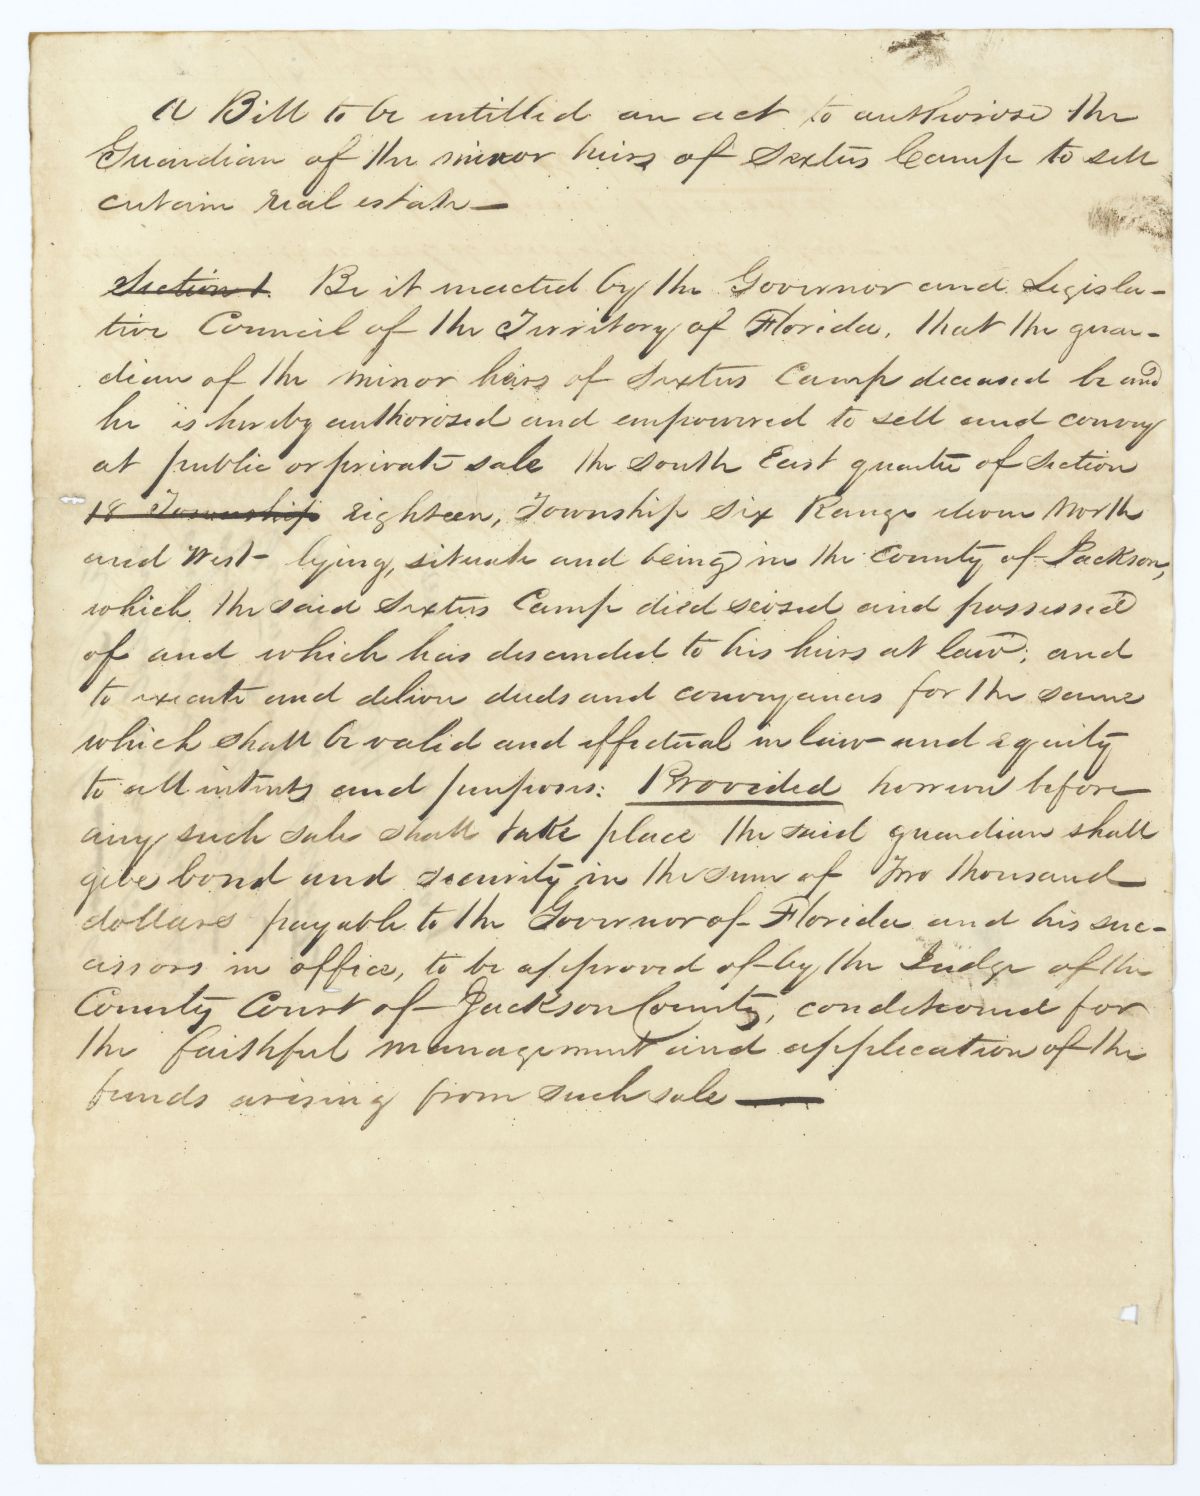 A Bill to be intitled an act to authorose the
Guardian of the minor heirs of Sextus Camp to sell
certain real estate—
Section 1. Be it enacted by the Governor and Legisla-
tive Council of the Territory of Florida, that the guar-
dian of the minor heirs of Sextus Camp deceased be and
he is hereby authorosed and empowered to sell and convey
at public or private sale the South East quarter of Section
18 Township eighteen, Township Six Range eleven North
and West- lying, situate and being in the County of Jackson,
which the said Sextus Camp died seized and possessed
of and which has descended to his heirs at law; and
to execute and deliver deeds and conveyances for the same
which shall be valid and effectual in law and equity
to all intents and purposes: Provided however before
any such sale shall take place the said guardian shall
give bond and security in the sum of Two thousand
dollars payable to the Governor of Florida and his suc-
cessors in office, to be approved of by the Judge of the
County Court of Jackson County, conditioned for
the faithful management and application of the
funds arising from such sale—